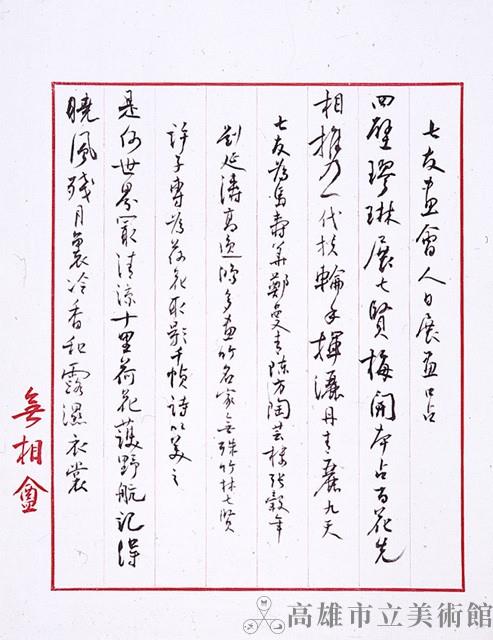 七友畫會人日展画口占
四壁璆琳展七賢梅開本占百花先
相推乃一代扶輪手揮灑丹青麗九天
七友為馬壽華鄭曼青陳方陶芸樓張穀年
劉延濤高逸鴻多画竹名家無殊竹林七賢
許子專為荷花取影千幀詩以美之
是何世界最清涼十里荷花護野航記得
曉風殘月裏冷香和露濕衣裳
無相盦
高雄市立美術館